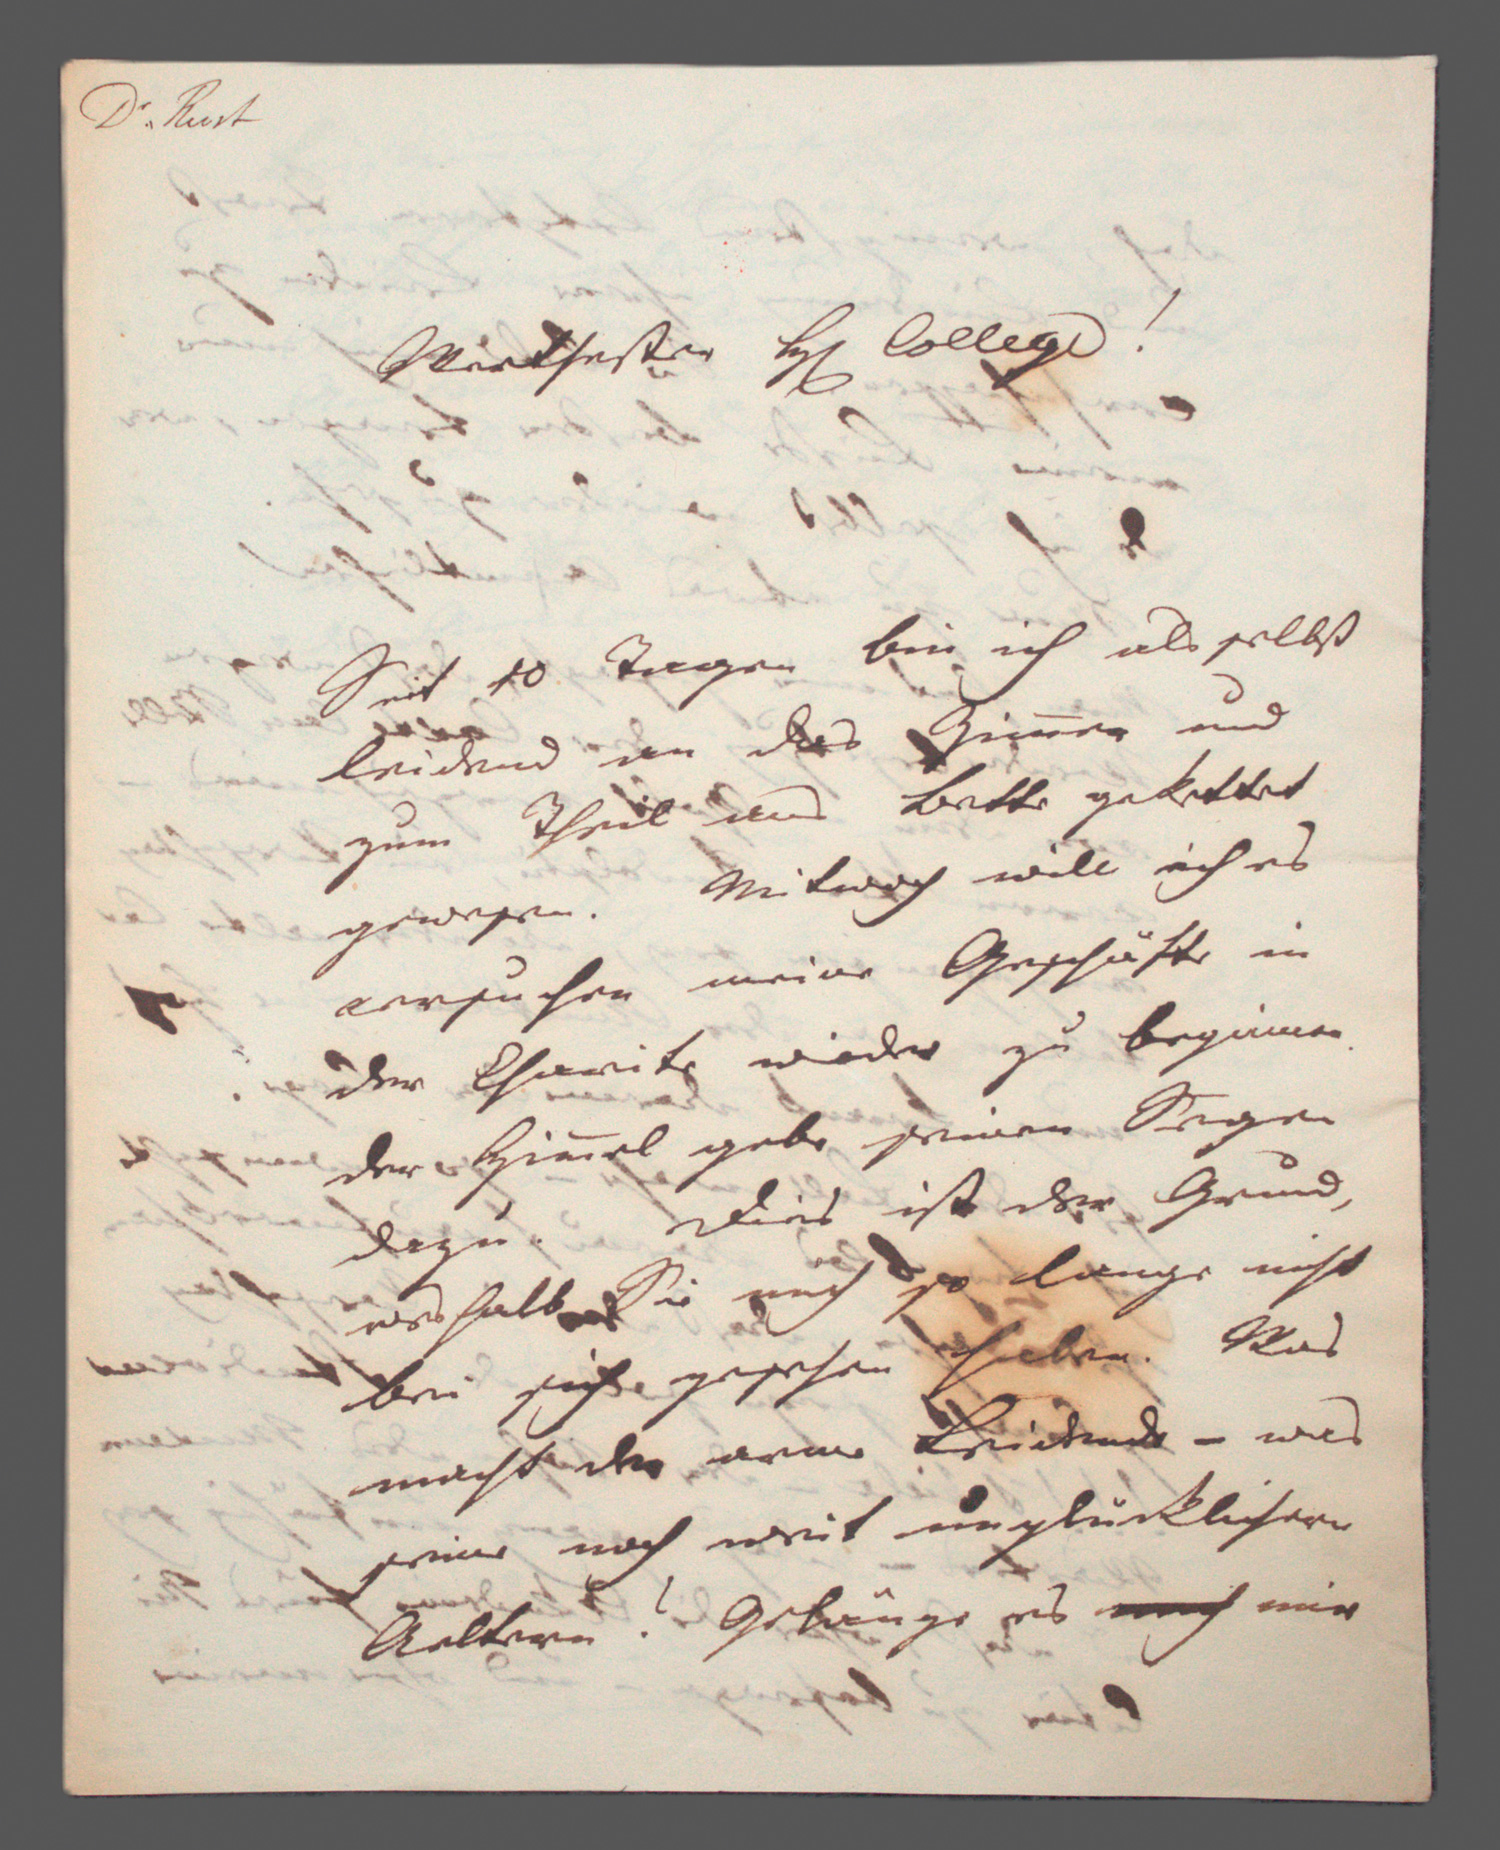 Dr. Rust
Werthester H College!
Seit 10 Tagen bin ich als selbst
leidend an das Zimmer und
zum Theil ans Bette gekettet
gewesen. Mitwoch will ich es
versuchen meine Geschäfte in
der Charite wieder zu beginnen.
der Himmel gebe seinen Segen
dazu. Dies ist der Grund,
weshalb Sie mich so lange nicht
bei sich gesehen haben. Was
macht der arme Leidende – was
seine noch weit unglücklichern
Aeltern! Gelänge es mir